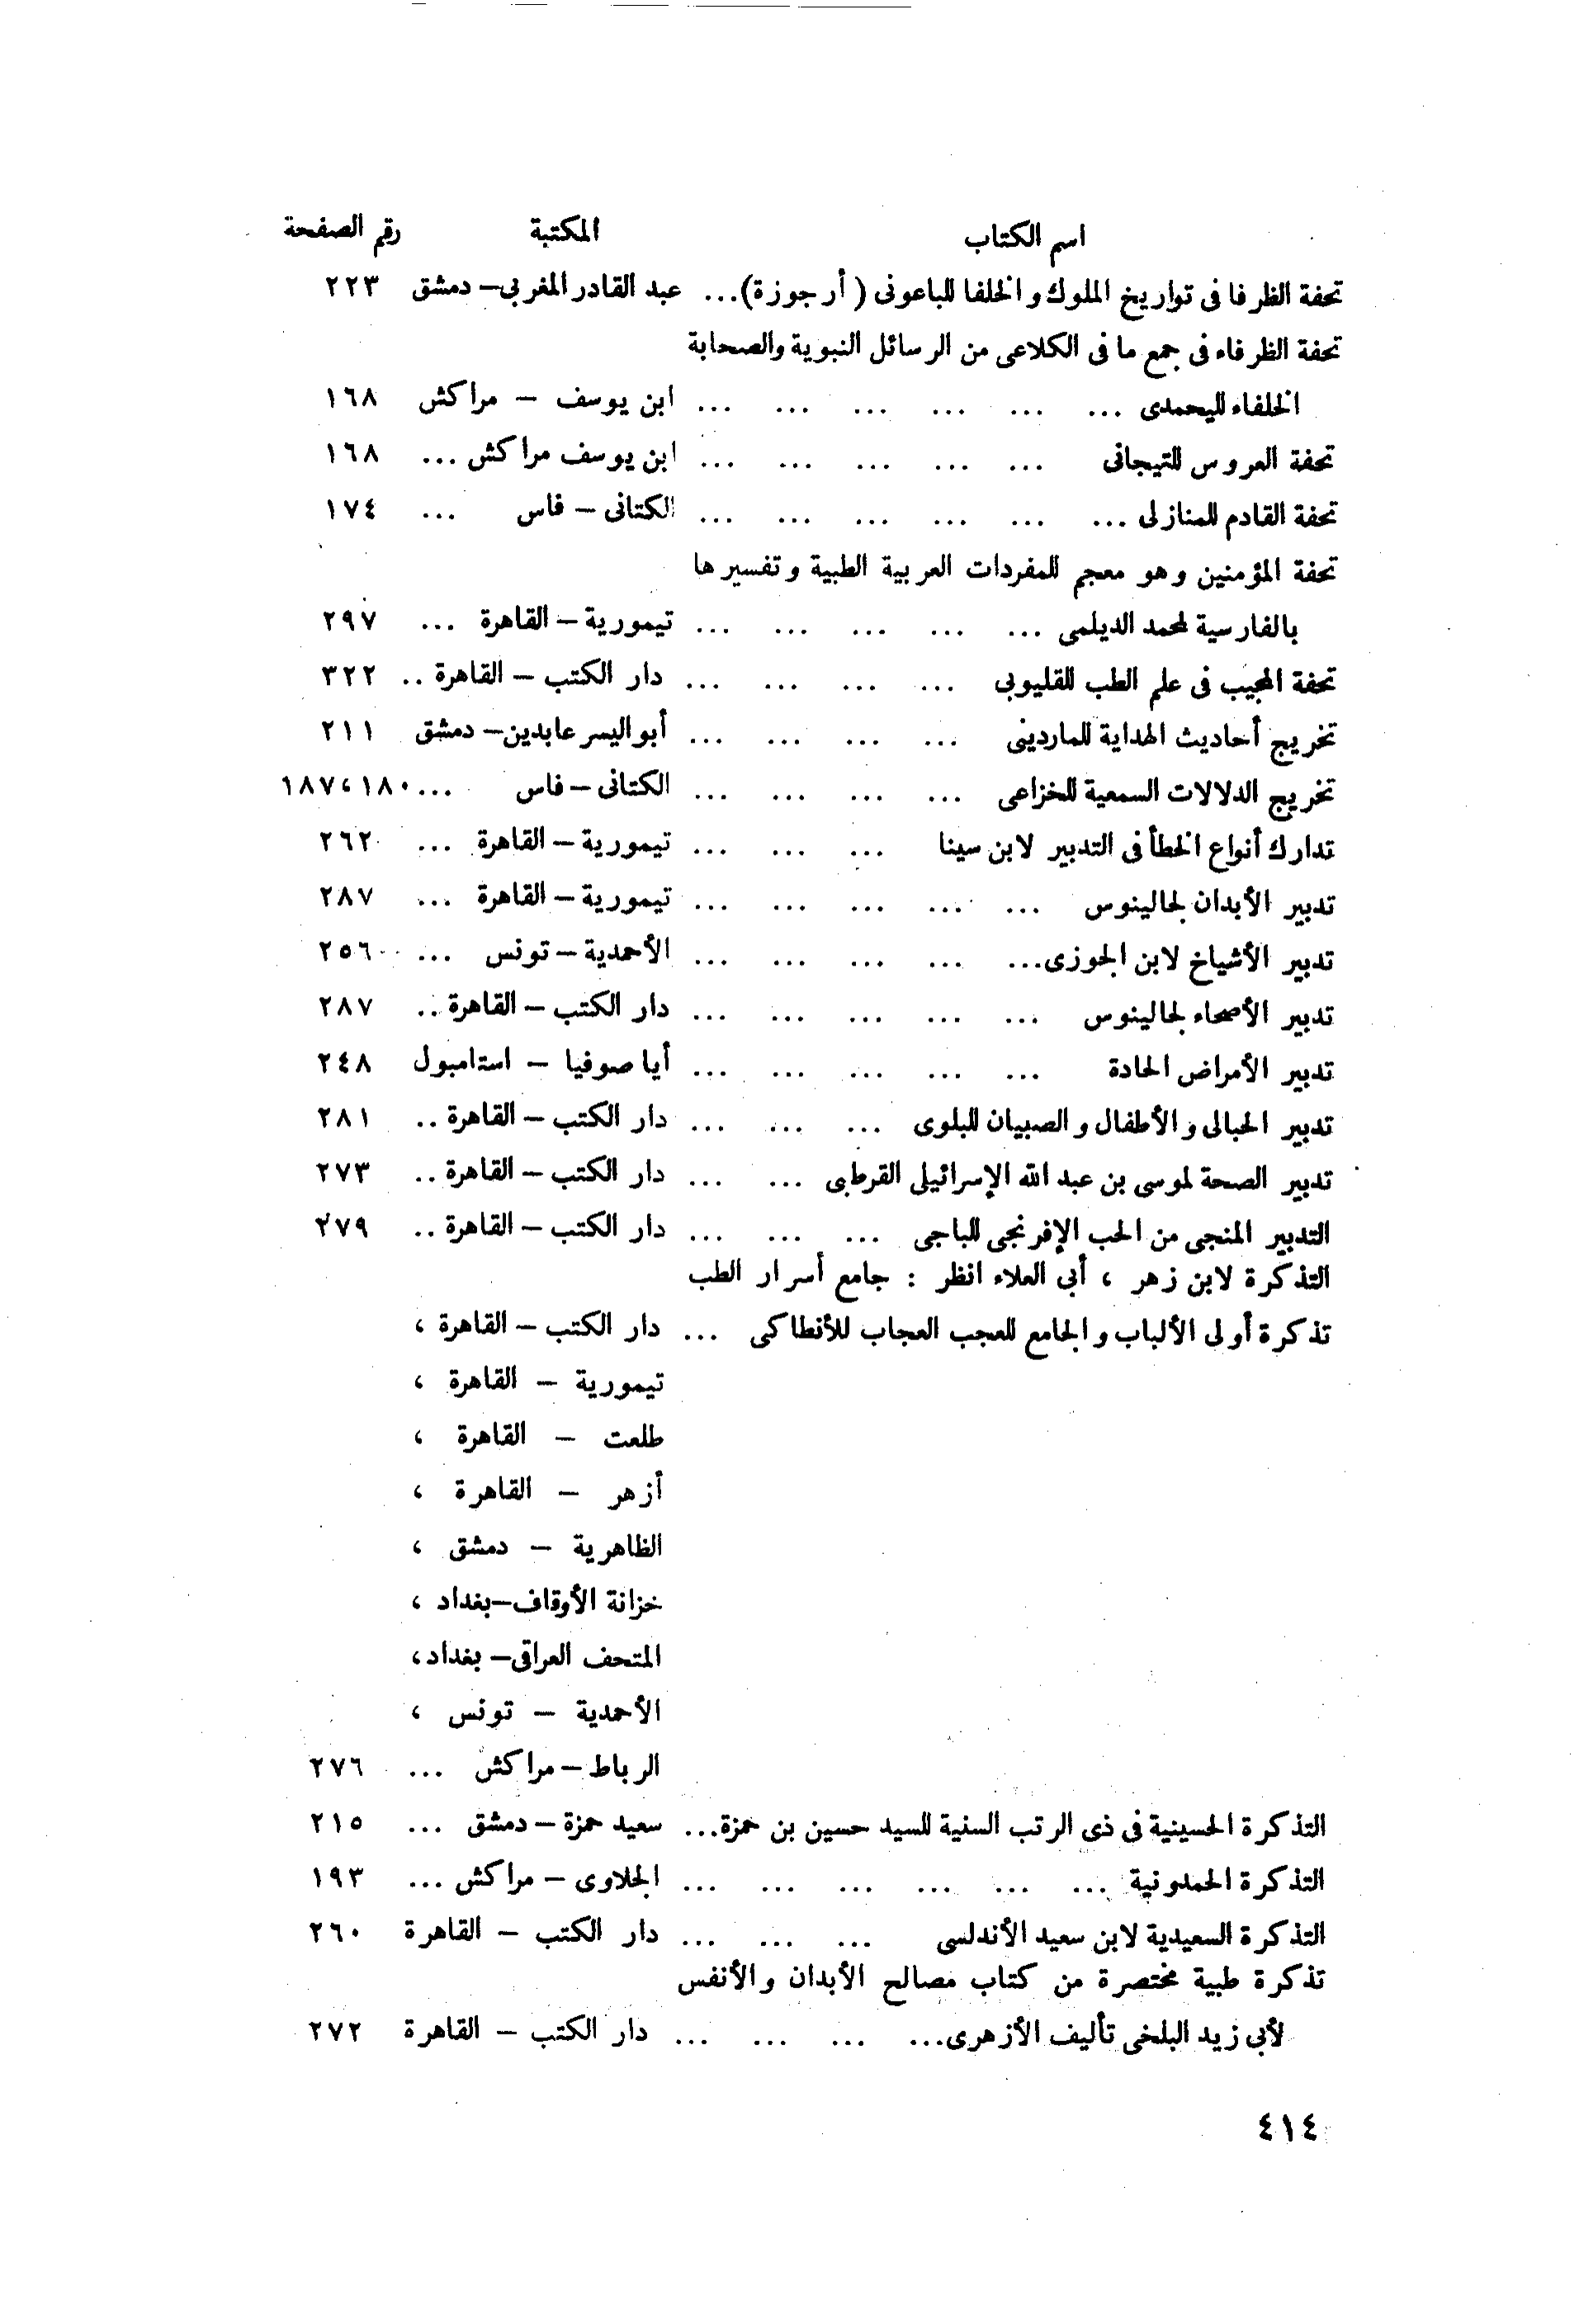 اسم الكتاب المكتبة رقم الصفحة
تحفة الظرفا فى تواريخ الملوك والخلفا للباعونى ( أرجوزة)... عبد القادر المغربى – دمشق ٢٢٣
تحفة الظرفاء فى جمع ما فى الكلاعى من الرسائل النبوية والصحابة
الخلفاء لليحمدى ... ... ... ... ... ... ابن يوسف – مراكش ١٦٨
تحفة العروس للتيجانى ... ... ... ... ... ابن يوسف مراكش ... ١٦٨
تحفة القادم للمنازلى ... ... ... ... ... ... الكتانى – فاس ... ١٧٤
تحفة المؤمنين وهو معجم للمفردات العربية الطبية وتفسيرها
بالفارسية لمحمد الديلمى ... ... ... ... ... تيمورية – القاهرة ... ٢٩٧
تحفة المجيب فى علم الطب للقليوبى ... ... ... ... دار الكتب – القاهرة .. ٣٢٢
تخريج أحاديث الهداية للماردينى ... ... ... ... أبو اليسر عابدين – دمشق ٢١١
تخريج الدلالات السمعية للخزاعى ... ... ... ... الكتانى – فاس ... ١٨٠، ١٨٧
تدارك أنواع الخطأ فى التدبير لابن سينا ... ... ... تيمورية – القاهرة ... ٢٦٢
تدبير الأبدان لجالينوس ... ... ... ... ... تيمورية – القاهرة ... ٢٨٧
تدبير الأشياخ لابن الجوزى... ... ... ... ... الأحمدية – تونس ... ٢٥٦
تدبير الأصحاء لجالينوس ... ... ... ... ... دار الكتب – القاهرة .. ٢٨٧
تدبير الأمراض الحادة ... ... ... ... ... أيا صوفيا – استامبول ٢٤٨
تدبير الحبالى والأطفال والصبيان للبلوى ... ... ... دار الكتب – القاهرة .. ٢٨١
تدبير الصحة لموسى بن عبد الله الإسرائيلى القرطبى ... ... دار الكتب – القاهرة .. ٢٧٣
التدبير المنجى من الحب الإفرنجى للباجى ... ... ... دار الكتب – القاهرة .. ٢٧٩
التذكرة لابن زهر ، أبى العلاء انظر : جامع أسرار الطب
تذكرة أولى الألباب والجامع للعجب العجاب للأنطاكى ... دار الكتب – القاهرة ،
تيمورية – القاهرة ،
طلعت – القاهرة ،
أزهر – القاهرة ،
الظاهرية – دمشق ،
خزانة الأوقاف – بغداد ،
المتحف العراقى – بغداد ،
الأحمدية – تونس ،
الرباط – مراكش ... ٢٧٦
التذكرة الحسينية فى ذى الرتب السنية للسيد حسين بن حمزة... سعيد حمزة – دمشق ... ٢١٥
التذكرة الحمدونية ... ... ... ... ... ... الجلاوى – مراكش ... ١٩٣
التذكرة السعيدية لابن سعيد الأندلسى ... ... ... دار الكتب – القاهرة ٢٦٠
تذكرة طبية مختصرة من كتاب مصالح الأبدان والأنفس
لأبى زيد البلخى تأليف الأزهرى... ... ... ... دار الكتب – القاهرة ٢٧٢
٤١٤